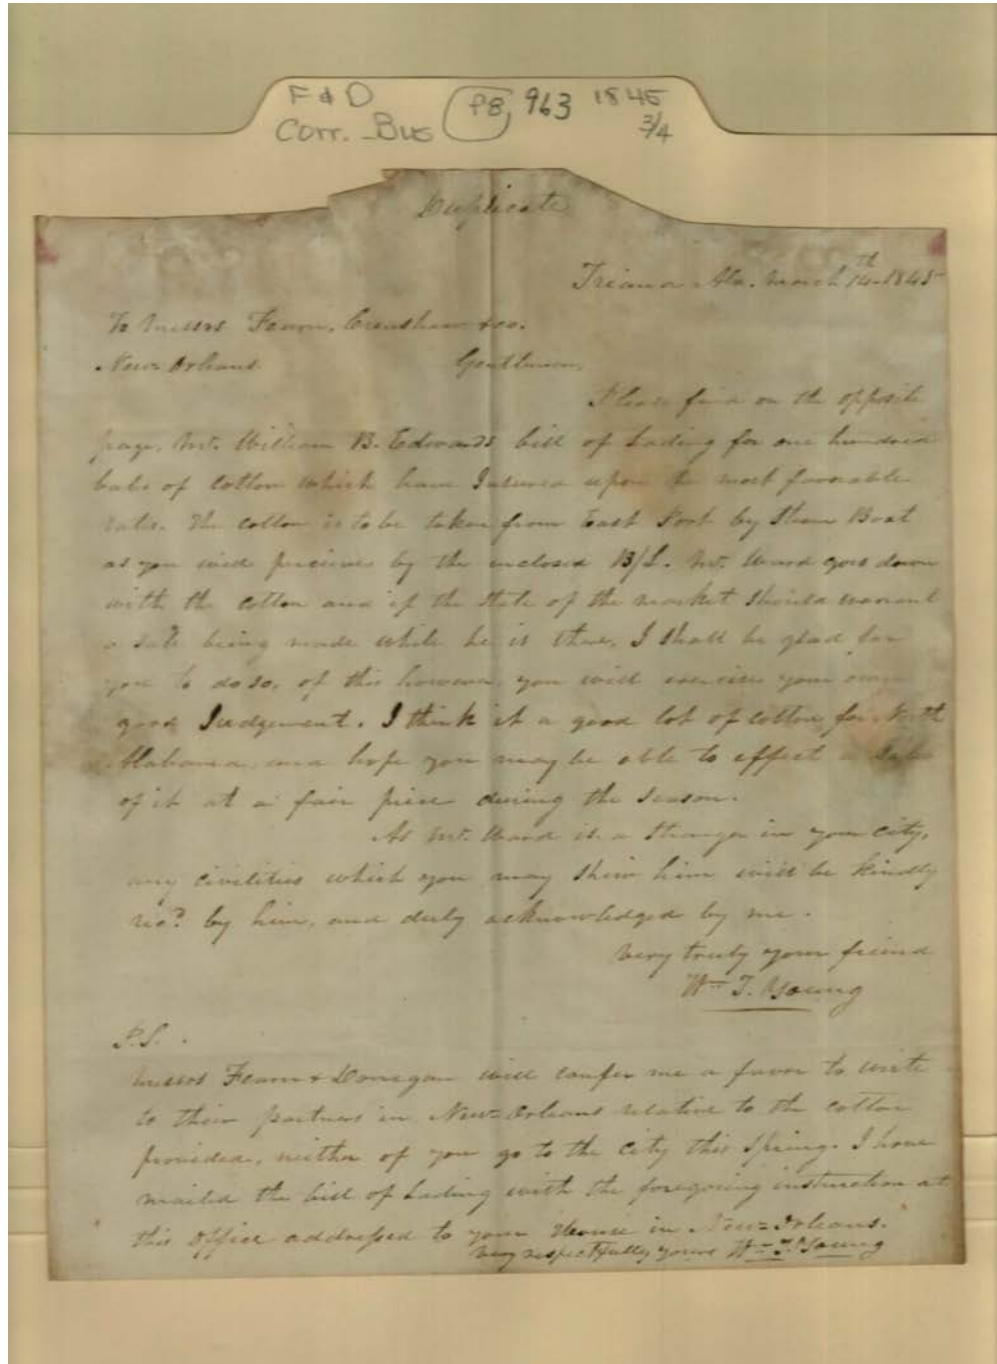 F & D
Corr. Bus
P8, 963 1845
3/4
Duplicate
Triana Ala. March 14th 1845
To Messrs Fearn, Crenshaw & co.
New Orleans. Gentlemen,
Please find on the opposite
page, Mr. William B. Edwards bill of Lading for one hundred
bale of cotton which have Insured upon the most favorable
rates. The cotton is to be taken from East Port by Steam Boat
as you will perceive by the enclosed B/L. Mr. Ward goes down
with the cotton and if the state of the market should warrant
a sale being made while he is there, I shall be glad for
you to do so, of this however, you will exercise your own
good Judgement. I think it a good lot of cotton for North
Alabama, and hope you may be able to effect a sale
of it at a fair price during the season.
As Mr. Ward is a stranger in your city,
any civilities which you may shew him will be kindly
rec? by him, and duly acknowledged by me.
Very truly your friend
Wm T. Young
P.S.
Messrs Fearn & Donegan will confer me a favor to write
to their partners in New Orleans relative to the cotton
provided, neither of you go to the City this Spring. I have
mailed the bill of Lading with the foregoing instruction at
this office addressed to your House in New Orleans.
Very respectfully yours Wm T. Young